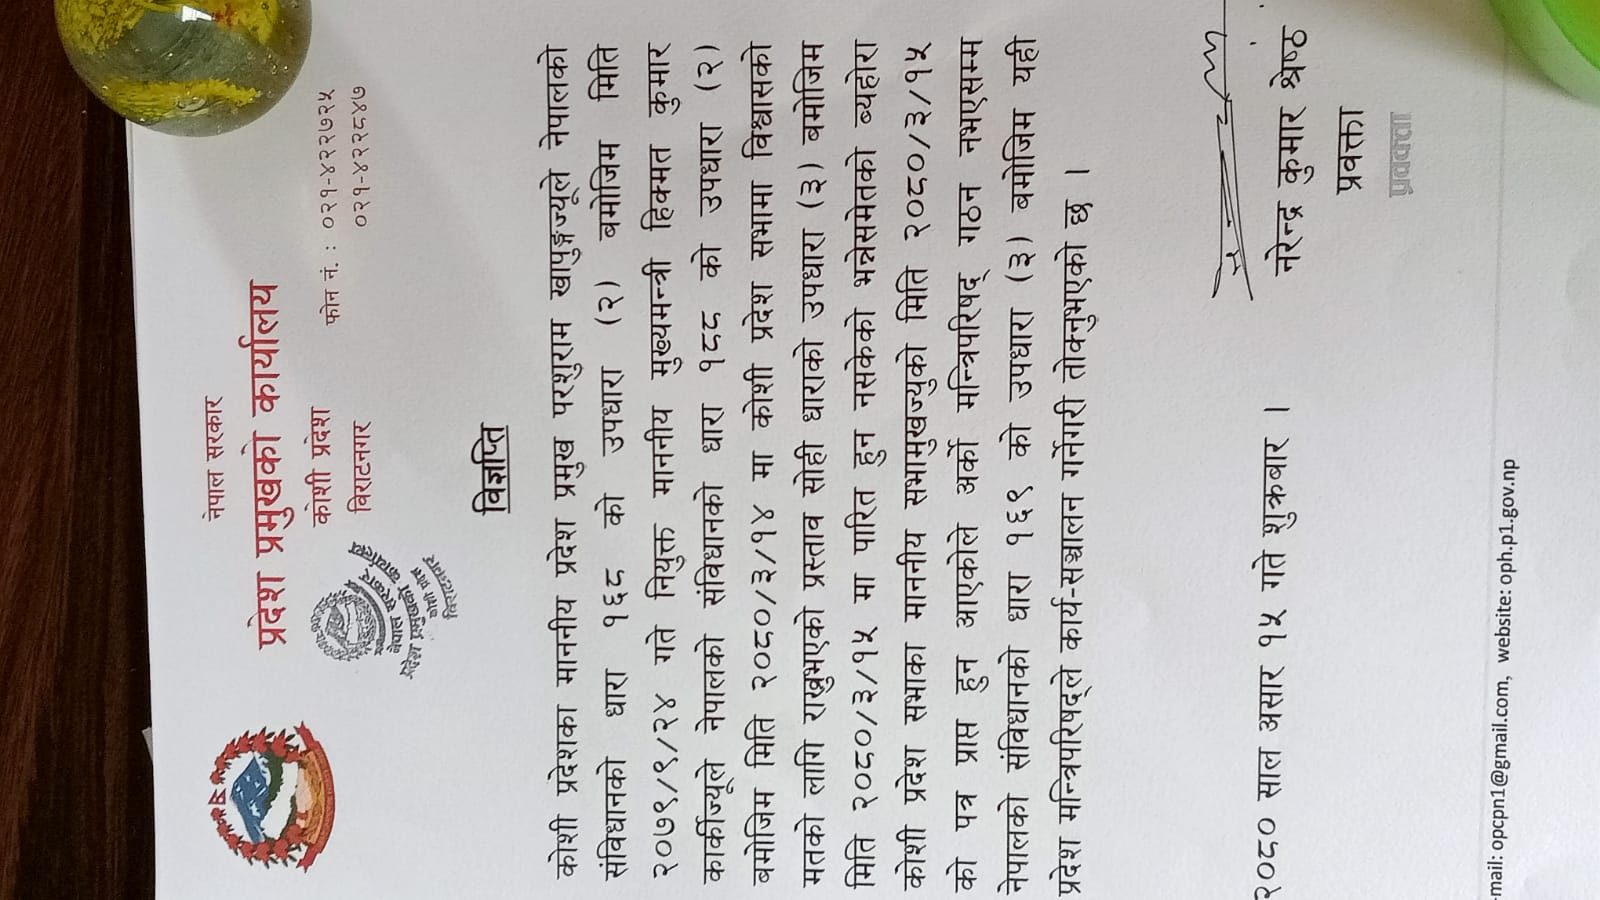 नेपाल सरकार
प्रदेश प्रमुखको कार्यालय
कोशी प्रदेश
विराटनगर
फोन नं. : ०२१-४२२७२५
०२१-४२२८४७
नेपाल सरकार
प्रदेश प्रमुखको कार्यालय
कोशी प्रदेश
विराटनगर
विज्ञप्ति
कोशी प्रदेशका माननीय प्रदेश प्रमुख परशुराम खापुङ्गज्यूले नेपालको
संविधानको धारा १६८ को उपधारा (२) बमोजिम मिति
२०७९/९/२४ गते नियुक्त माननीय मुख्यमन्त्री हिक्मत कुमार
कार्कीज्यूले नेपालको संविधानको धारा १८८ को उपधारा (२)
बमोजिम मिति २०८०/३/१४ मा कोशी प्रदेश सभामा विश्वासको
मतको लागि राख्नुभएको प्रस्ताव सोही धाराको उपधारा (३) बमोजिम
मिति २०८०/३/१५ मा पारित हुन नसकेको भन्नेसमेतको ब्यहोरा
कोशी प्रदेश सभाका माननीय सभामुखज्युको मिति २०८०/३/१५
को पत्र प्राप्त हुन आएकोले अर्को मन्त्रिपरिषद् गठन नभएसम्म
नेपालको संविधानको धारा १६९ को उपधारा (३) बमोजिम यही
प्रदेश मन्त्रिपरिषद्ले कार्य-सञ्चालन गर्नेगरी तोक्नुभएको छ ।
नरेन्द्र कुमार श्रेष्ठ
प्रवक्ता
प्रवक्ता
२०८० साल असार १५ गते शुक्रबार ।
-mail: opcpn1@gmail.com, website: oph.p1.gov.np